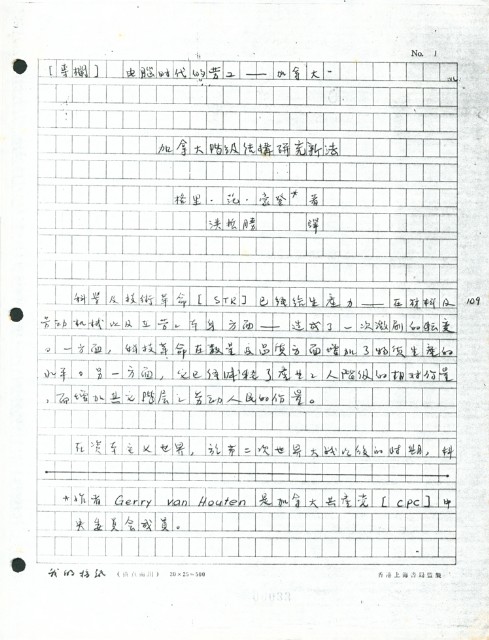 No. 1
[專欄] 电腦时代的劳工 — 加拿大
加拿大階級结構研究新法
格里·范·豪登* 著
洪哲勝 譯
科学及技術革命 [STR] 已经给生產力 — 在材料及 109
劳动机械以及工劳工本身方面 — 造成了一次激剧的転变
。一方面，科技革命在数量及品質方面增加了物质生產的
水平。另一方面，它已经降轻了產生工人階級的相对份量
，而增加其它階层之劳动人民的份量。
在资本主义世界，於第二次世界大战以後的时期，科
*作者 Gerry van Houten 是加拿大共產党 [CPC] 中
央委員会成員。
20×25=500
香港上海書局監製